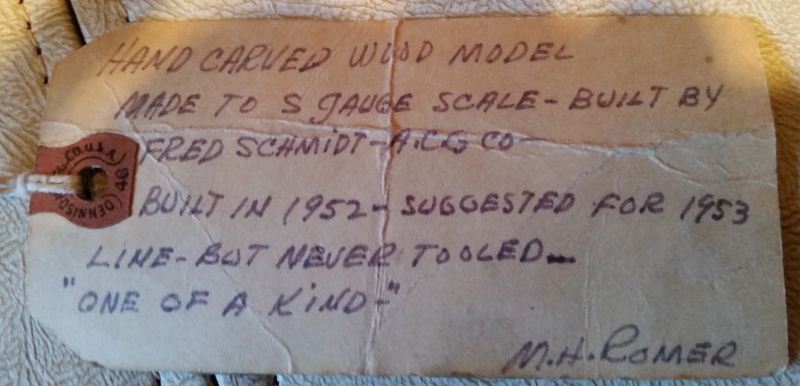 HAND CARVED WOOD MODEL
MADE TO S GAUGE SCALE - BUILT BY
FRED SCHMIDT - A.C.G. CO
BUILT IN 1952 - SUGGESTED FOR 1953
LINE - BUT NEVER TOOLED...
"ONE OF A KIND -"
M.H. ROMER
CO. U.S.A.
4G
DENNISON